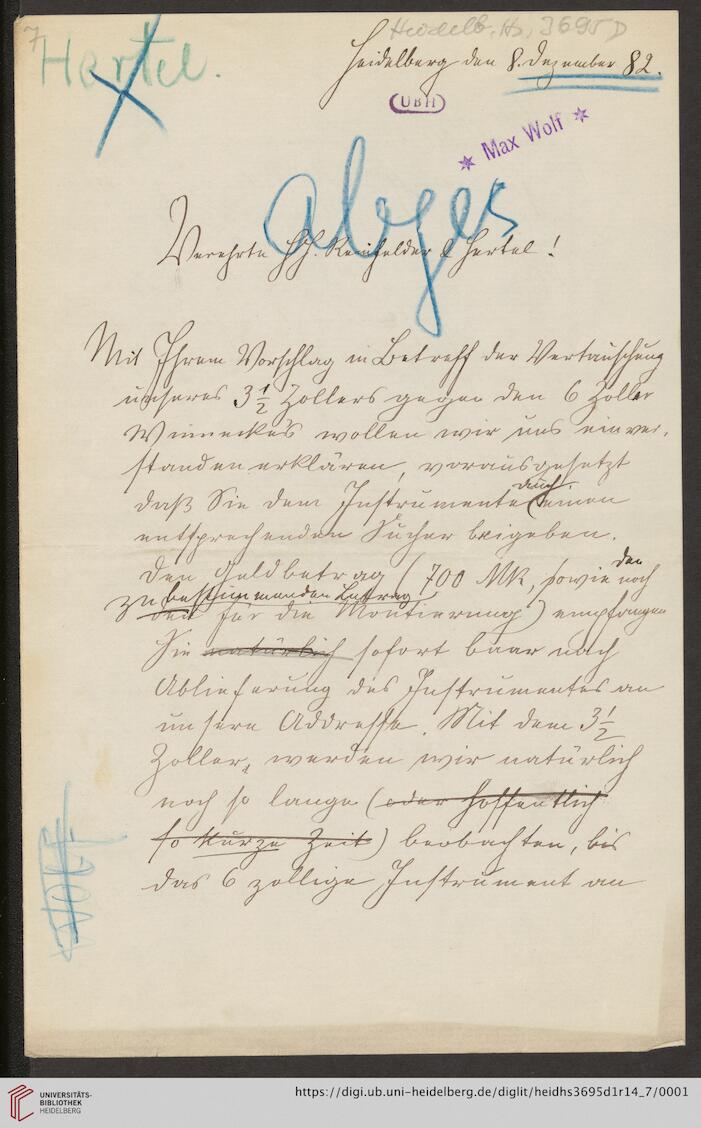 7
Heidelb. Hs. 3695 D
Hertel.
Heidelberg den 8. Dezember 82.
UBH
* Max Wolf *
abges
Verehrte HH. Reinfelder & Hertel!
Mit Ihrem Vorschlag in Betreff der Vertauschung
unseres 3 1/2 Zollers gegen den 6 Zoller
Winnecke's wollen wir uns einver-
standen erklären, vorausgesetzt
daß Sie dem Instrumente auch einen
entsprechenden Sucher beigeben.
Den Geldbetrag (700 Mk, sowie den noch
zu bestimmenden Betrag
den für die Montierung) empfangen
Sie natürlich sofort baar nach
Ablieferung des Instrumentes an
unsere Addresse. Mit dem 3 1/2
Zoller, werden wir natürlich
noch so lange (oder hoffentlich
so kurze Zeit) beobachten, bis
das 6 zollige Instrument an
Wolf
UNIVERSITÄTS-
BIBLIOTHEK
HEIDELBERG
https://digi.ub.uni-heidelberg.de/diglit/heidhs3695d1r14_7/0001